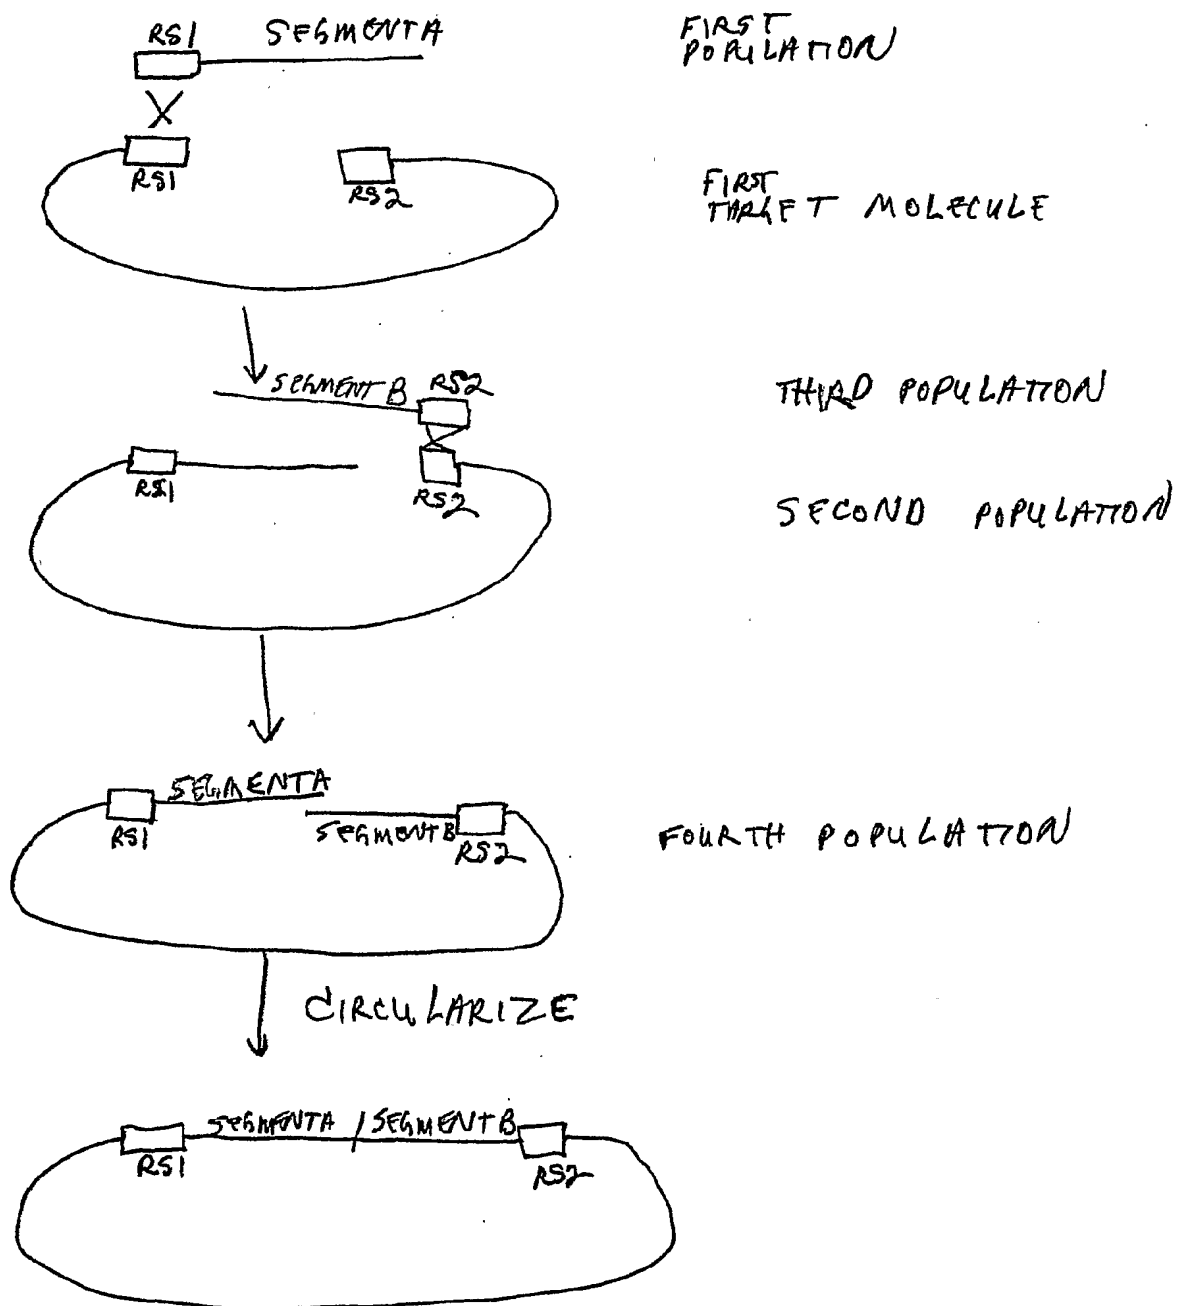 RS1 SEGMENTA
FIRST
POPULATION
RS1 RS2
FIRST
TARGET MOLECULE
SEGMENT B RS2
THIRD POPULATION
RS1 RS2
SECOND POPULATION
SEGMENTA
RS1 SEGMENTB RS2
FOURTH POPULATION
CIRCULARIZE
SEGMENTA / SEGMENTB
RS1 RS2